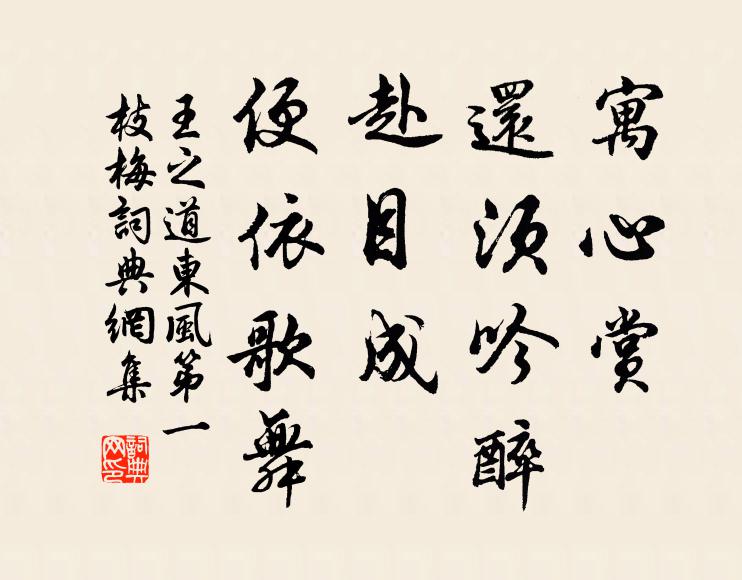 寓心賞
還須吟醉
赴目成
便依歌舞
王之道東風第一
枝梅詞典網集
詞典
网印